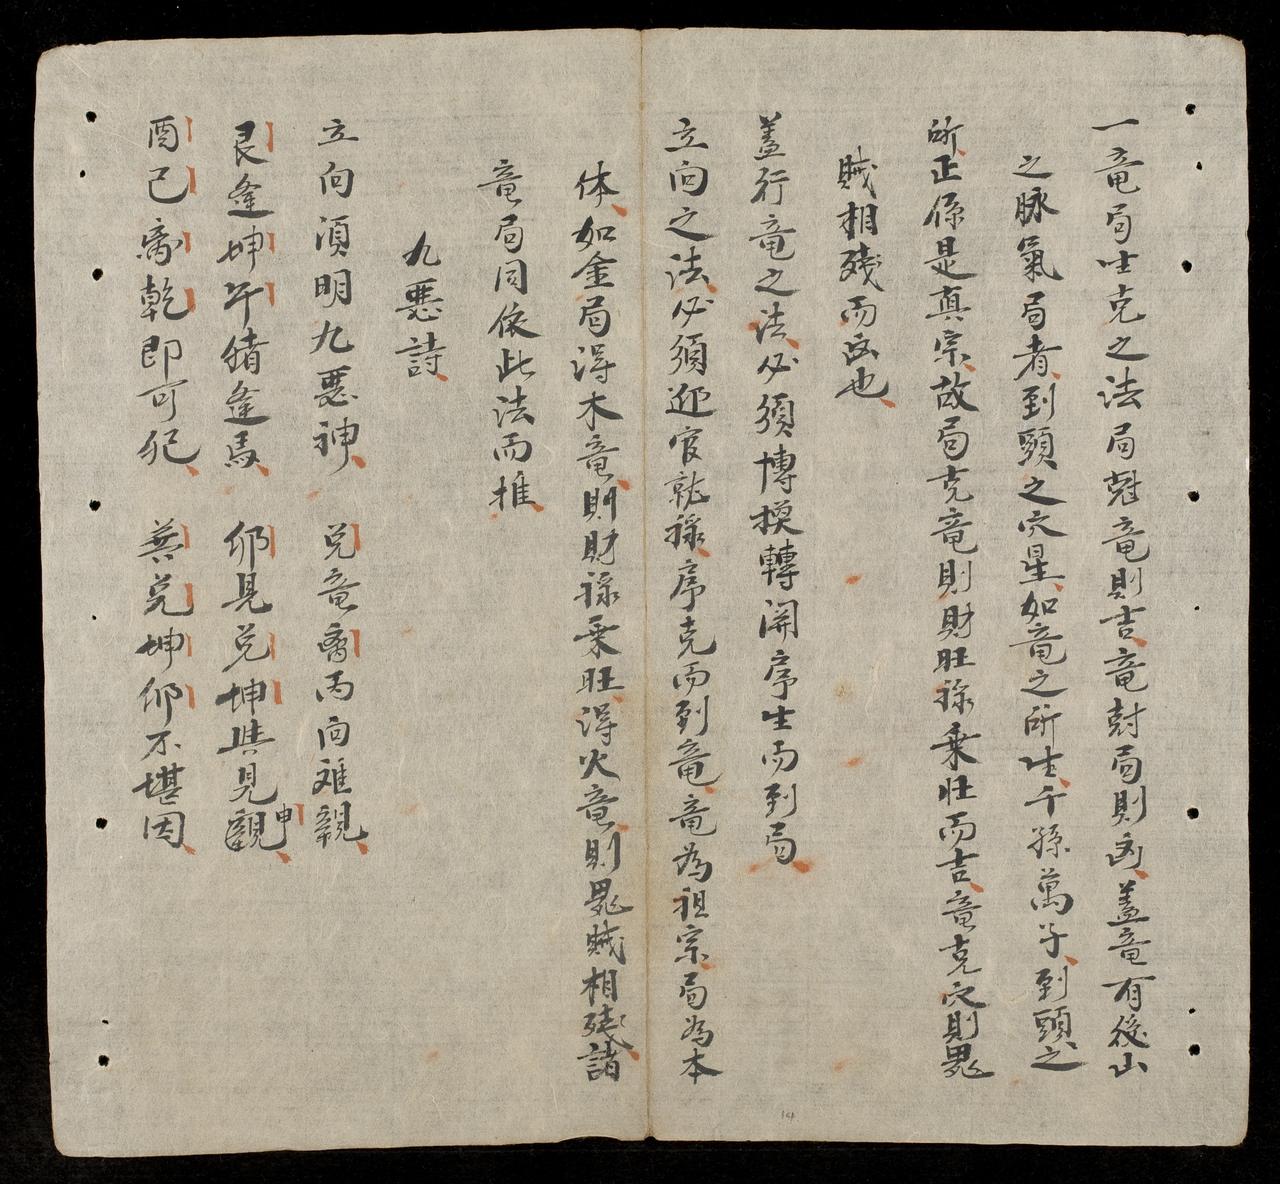 一竜局生克之法局尅竜則吉竜尅局則凶蓋竜有後山
之脉氣局者到頭之穴星如竜之所生千孫萬子到頭之
所正係是真宗故局克竜則財旺祿乗旺而吉竜克穴則鬼
賊相殘而凶也
蓋行竜之法必須博換轉開序生而到局
立向之法必須迎官就祿序克而到竜竜為祖宗局為本
体如金局得木竜則財祿乗旺得火竜則鬼賊相殘諸
竜局同依此法而推
九惡詩
立向須明九惡神 兌竜离丙向难親
艮逢坤午猪逢馬 卯見兌坤与見觀申
酉己离乾即可犯 巽兌坤卯不堪因
14